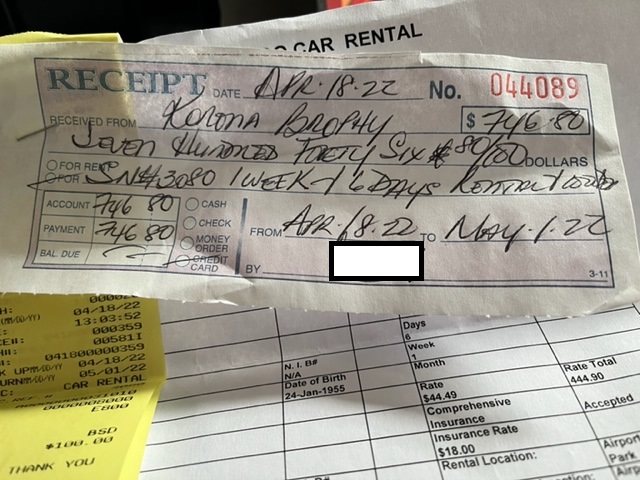 CAR RENTAL
RECEIPT DATE APR.18.22 No. 044089
RECEIVED FROM Korona Brophy $ 746.80
Seven Hundred Forty Six 80/00 DOLLARS
FOR RENT
FOR SN#3080 1 WEEK 6 DAYS Rental
ACCOUNT 746 80 CASH
PAYMENT 746 80 CHECK
BAL. DUE MONEY ORDER
CREDIT CARD
FROM APR.18.22 TO MAY.1.22
BY
3-11
04/18/22
13:03:52
000359
00581I
041800000359
UP(MM/DD/YY) 04/18/22
05/01/22
CAR RENTAL
0000008000
E800
BSD
$100.00
THANK YOU
N. I. B#
N/A
Date of Birth
24-Jan-1955
Days
6
Week
1
Month
Rate
$44.49
Comprehensive
Insurance
Insurance Rate
$18.00
Rental Location:
Rate Total
444.90
Accepted
Airport
Park